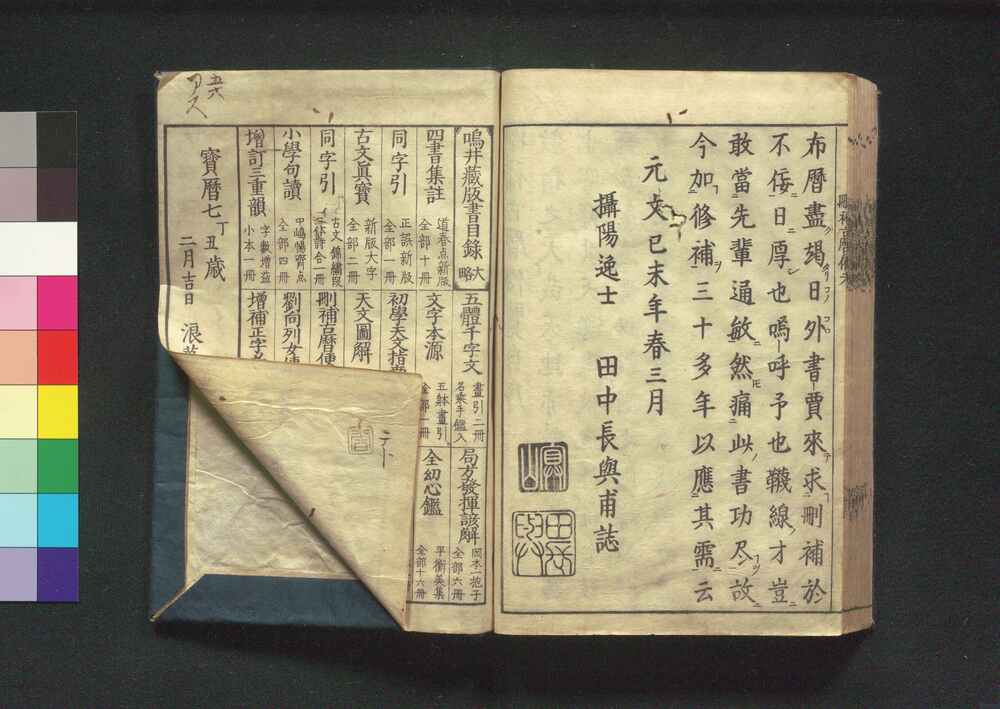 布曆盡竭日外書賈來求刪補於
不侫日厚也嗚呼予也韈線才豈
敢當先輩通敏然痛此書功尽故
今加修補三十多年以應其需云
元文己未年春三月
攝陽逸士 田中長與甫誌
鳴井藏版書目錄 大略
四書集註 道春点新版 全部十冊
同字引 正誤新版 全部一冊
古文眞寶 新版大字 全部二冊
同字引 古文錦繡段 三体詩合一冊
小學句讀 中嶋惕齊点 全部四冊
增訂三重韻 字數增益 小本一冊
五體千字文 畫引二冊 名乗手鑑入
文字本源 五躰畫引 全部一冊
初學天文指
天文圖解
刪補古曆便
劉向列女
增補正字
局方發揮諺解 岡本一抱子 全部六冊
仝幼心鑑 平衡美集 全部十六冊
寶曆七丁丑歲
二月吉日 浪